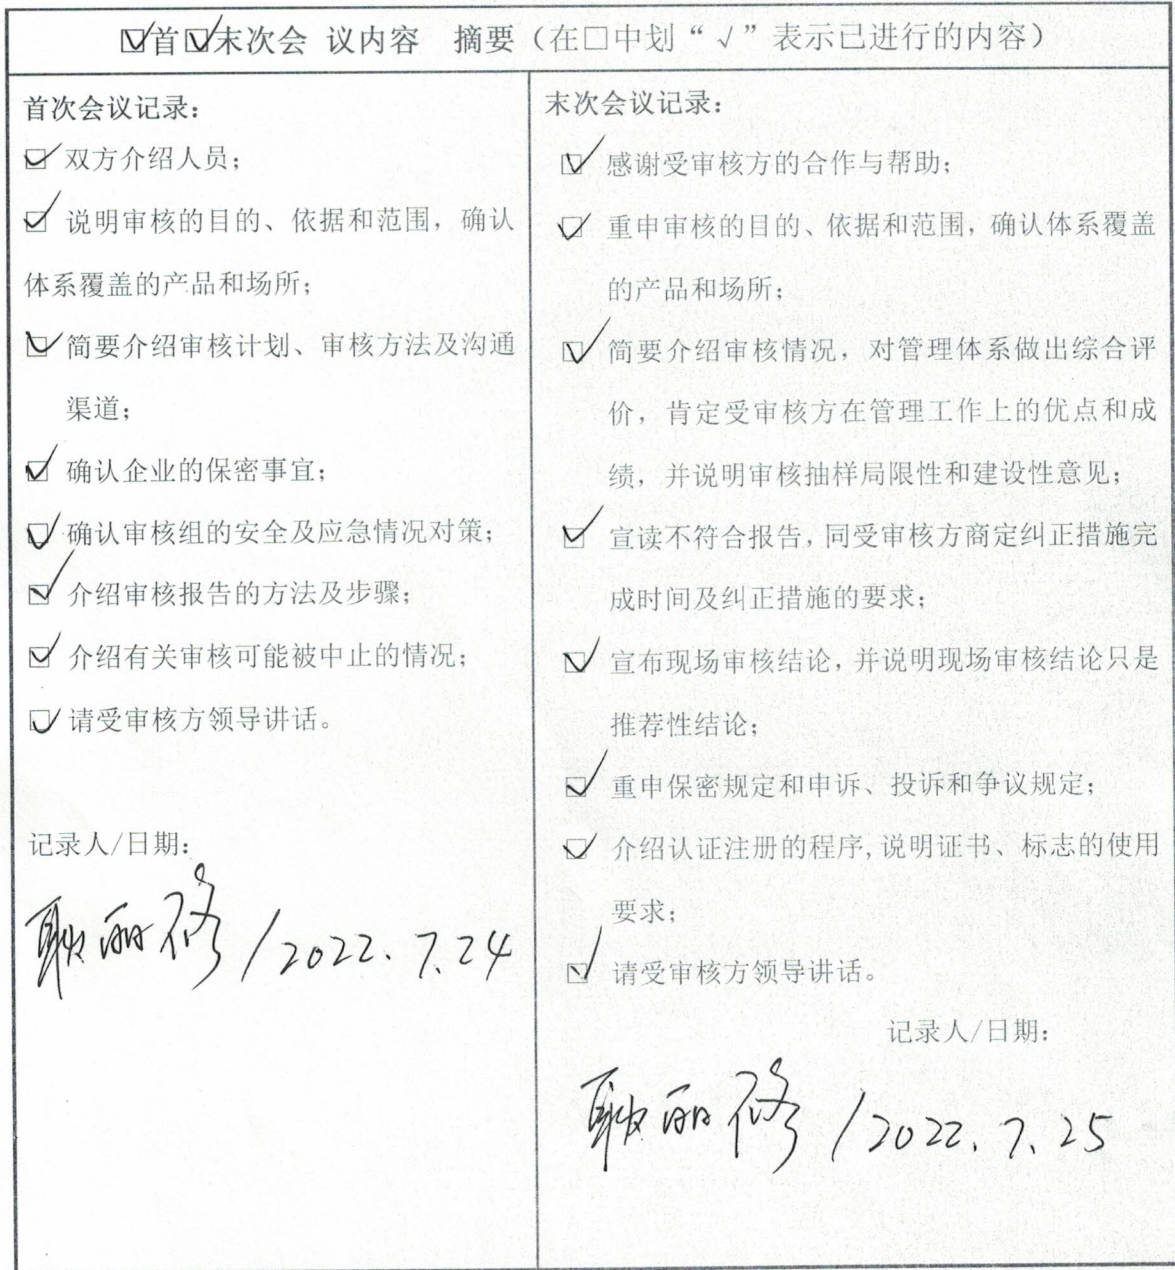 ☑首☑末次会 议内容 摘要（在□中划“√”表示已进行的内容）
首次会议记录：
☑双方介绍人员；
☑说明审核的目的、依据和范围，确认
体系覆盖的产品和场所；
☑简要介绍审核计划、审核方法及沟通
渠道；
☑确认企业的保密事宜；
☑确认审核组的安全及应急情况对策；
☑介绍审核报告的方法及步骤；
☑介绍有关审核可能被中止的情况；
☑请受审核方领导讲话。
记录人/日期：
耿丽修 /2022.7.24
末次会议记录：
☑感谢受审核方的合作与帮助；
☑重申审核的目的、依据和范围，确认体系覆盖
的产品和场所；
☑简要介绍审核情况，对管理体系做出综合评
价，肯定受审核方在管理工作上的优点和成
绩，并说明审核抽样局限性和建设性意见；
☑宣读不符合报告，同受审核方商定纠正措施完
成时间及纠正措施的要求；
☑宣布现场审核结论，并说明现场审核结论只是
推荐性结论；
☑重申保密规定和申诉、投诉和争议规定；
☑介绍认证注册的程序,说明证书、标志的使用
要求；
☑请受审核方领导讲话。
记录人/日期：
耿丽修 /2022.7.25